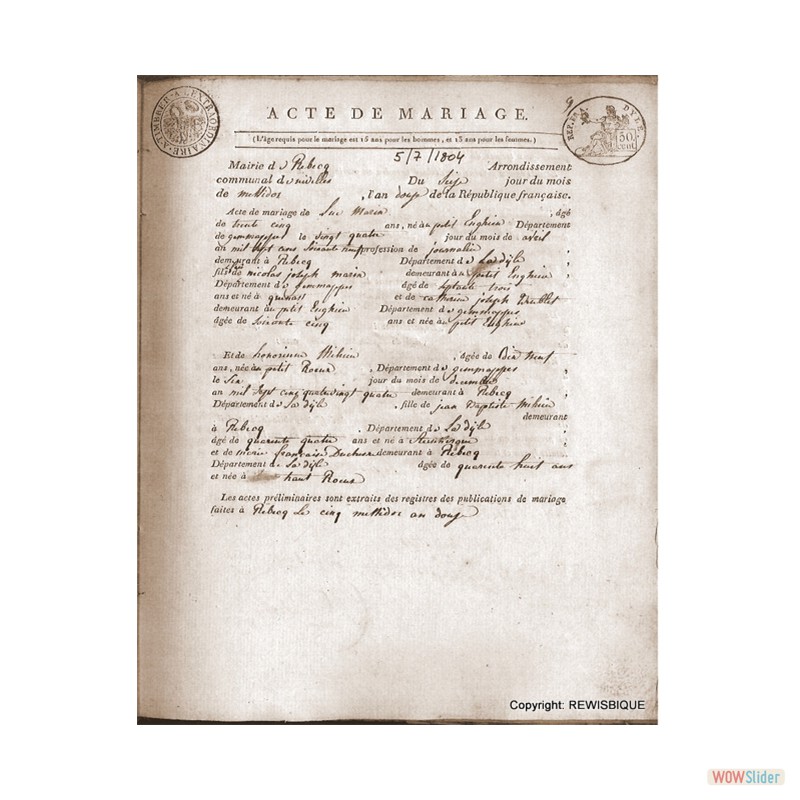 A TIMBRER A L'EXTRAORDINAIRE
9
REP. FRA. DYLE
50 cent.
ACTE DE MARIAGE.
(L'âge requis pour le mariage est 15 ans pour les hommes, et 13 ans pour les femmes.)
5/7/1804
Mairie de Rebecq Arrondissement
communal de nivelles Du Seize jour du mois
de messidor , l'an douze de la République française.
Acte de mariage de Luc Marin , âgé
de trente cinq ans, né au petit Enghien Département
de gemmappes le vingt quatre jour du mois de avril
an mil sept cens soixante neuf profession de journalier
demeurant à Rebecq Département de La dijle ,
fils de nicolas joseph marin demeurant à petit Enghien ,
Département de gemmappes âgé de septante trois
ans et né à quenast et de catherine joseph
demeurant au petit Enghien Département de gemmappes
âgée de soixante cinq ans et née au petit Enghien
Et de honorinne Mihiu , âgée de Dix neuf
ans, née au petit Roeux , Département de gemmappes ,
le Six jour du mois de décembre
an mil sept cinq quatre vingt quatre demeurant à Rebecq ,
Département de La dijle , fille de jean Baptiste Mihiu
demeurant
à Rebecq , Département de La dijle ,
âgé de quarente quatre ans et né à ,
et de marie françoise demeurant à Rebecq
Département de La dijle âgée de quarente huit ans
et née à haut Roeux
Les actes préliminaires sont extraits des registres des publications de mariage
faites à Rebecq Le cinq messidor an douze
Copyright: REWISBIQUE
WOWSlider